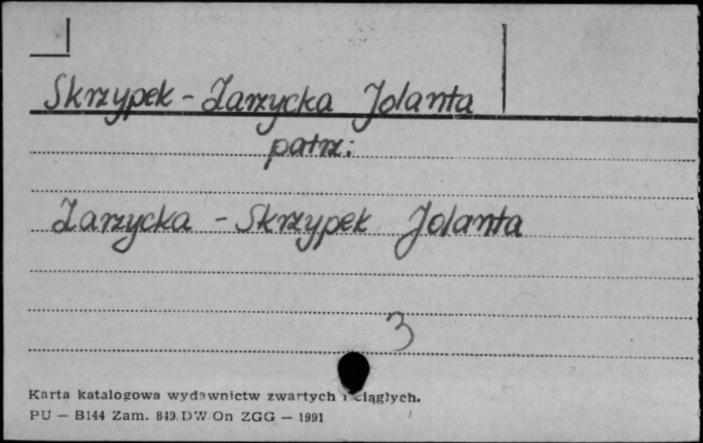 Skrzypek - Zarzycka Jolanta
patrz:
Zarzycka - Skrzypek Jolanta
3
Karta katalogowa wydawnictw zwartych i ciągłych.
PU — B144 Zam. 849. DW On ZGG — 1991